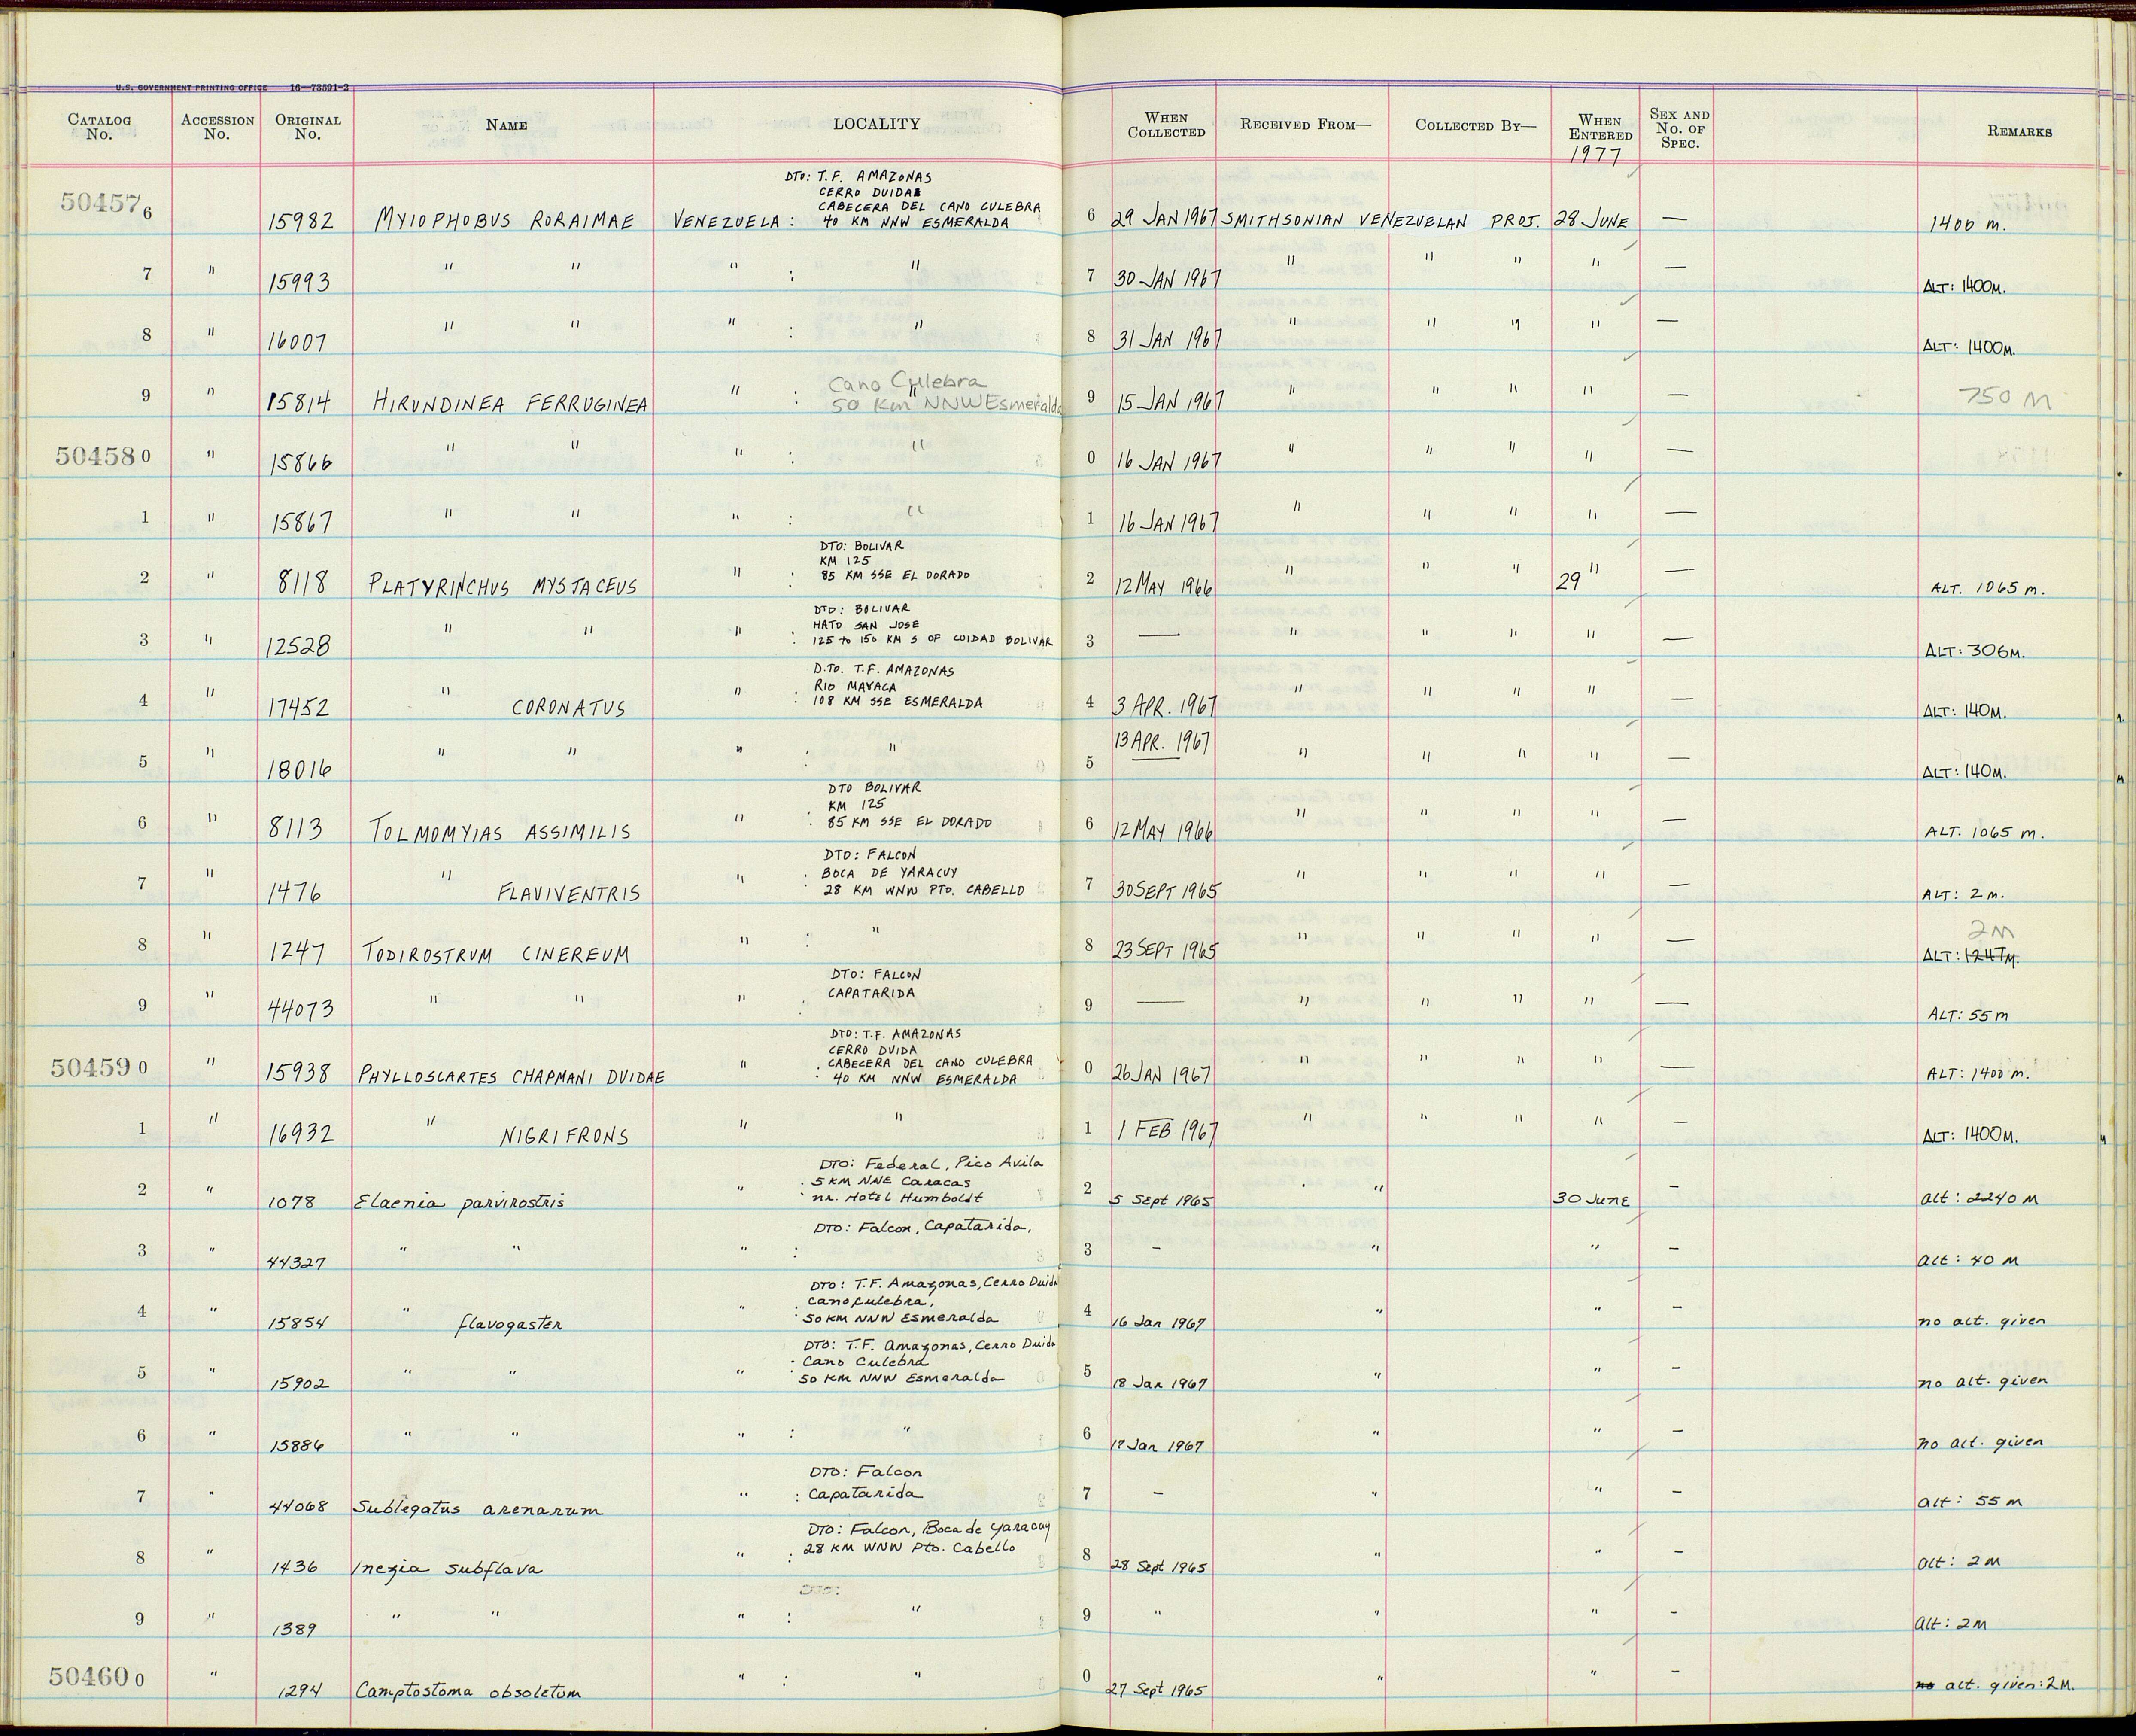 U.S. GOVERNMENT PRINTING OFFICE 16—73591-2
CATALOG No. ACCESSION No. ORIGINAL No. NAME LOCALITY WHEN COLLECTED RECEIVED FROM— COLLECTED BY— WHEN ENTERED SEX AND No. OF SPEC. REMARKS
1977
DTO: T.F. AMAZONAS
CERRO DUIDA
CABECERA DEL CANO CULEBRA
504576 15982 MYIOPHOBUS RORAIMAE VENEZUELA: 40 KM NNW ESMERALDA 6 29 JAN 1967 SMITHSONIAN VENEZUELAN PROJ. 28 JUNE — 1400 m.
7 " 15993 " " " : " 7 30 JAN 1967 " " " " — ALT: 1400M.
8 " 16007 " " " : " 8 31 JAN 1967 " " " " — ALT: 1400M.
Cano Culebra
9 " 15814 HIRUNDINEA FERRUGINEA " : " 50 Km NNW Esmeralda 9 15 JAN 1967 " " " " — 750 M
504580 " 15866 " " " : " 0 16 JAN 1967 " " " " —
1 " 15867 " " " : " 1 16 JAN 1967 " " " " —
DTO: BOLIVAR
KM 125
2 " 8118 PLATYRINCHUS MYSTACEUS " : 85 KM SSE EL DORADO 2 12 MAY 1966 " " " 29 " — ALT. 1065 m.
DTO: BOLIVAR
HATO SAN JOSE
3 " 12528 " " " : 125 to 150 KM S OF CUIDAD BOLIVAR 3 — " " " " — ALT: 306M.
D.TO. T.F. AMAZONAS
RIO MAVACA
4 " 17452 " CORONATUS " : 108 KM SSE ESMERALDA 4 3 APR. 1967 " " " " — ALT: 140M.
5 " 18016 " " " : " 5 13 APR. 1967 " " " " — ALT: 140M.
DTO BOLIVAR
KM 125
6 " 8113 TOLMOMYIAS ASSIMILIS " : 85 KM SSE EL DORADO 6 12 MAY 1966 " " " " — ALT. 1065 m.
DTO: FALCON
BOCA DE YARACUY
7 " 1476 " FLAVIVENTRIS " : 28 KM WNW PTO. CABELLO 7 30 SEPT 1965 " " " " — ALT: 2 m.
2M
8 " 1247 TODIROSTRUM CINEREUM " : " 8 23 SEPT 1965 " " " " — ALT: 1247M.
DTO: FALCON
9 " 44073 " " " : CAPATARIDA 9 — " " " " — ALT: 55 m
DTO: T.F. AMAZONAS
CERRO DUIDA
CABECERA DEL CANO CULEBRA
504590 " 15938 PHYLLOSCARTES CHAPMANI DUIDAE " : 40 KM NNW ESMERALDA 0 26 JAN 1967 " " " " — ALT: 1400 m.
1 " 16932 " NIGRIFRONS " " 1 1 FEB 1967 " " " " — ALT: 1400M.
DTO: Federal, Pico Avila
5 KM NNE Caracas
2 " 1078 Elaenia parvirostris " : nr. Hotel Humboldt 2 5 Sept 1965 " 30 June — alt: 2240 M
DTO: Falcon, Capatarida,
3 " 44327 " " " : 3 — " " — alt: 40 M
DTO: T.F. Amazonas, Cerro Duida
Cano Culebra,
4 " 15854 " flavogaster " : 50 KM NNW Esmeralda 4 16 Jan 1967 " " — no alt. given
DTO: T.F. Amazonas, Cerro Duida
Cano Culebra
5 " 15902 " " " : 50 KM NNW Esmeralda 5 18 Jan 1967 " " — no alt. given
6 " 15886 " " " : " 6 17 Jan 1967 " " — no alt. given
DTO: Falcon
7 " 44068 Sublegatus arenarum " : Capatarida 7 — " " — alt: 55 M
DTO: Falcon, Boca de Yaracuy
8 " 1436 Inezia subflava " : 28 KM WNW Pto. Cabello 8 28 Sept 1965 " " — alt: 2 M
DTO:
9 " 1389 " " " : " 9 " " " — alt: 2 M
504600 " 1294 Camptostoma obsoletum " : " 0 27 Sept 1965 " " — no alt. given: 2 M.